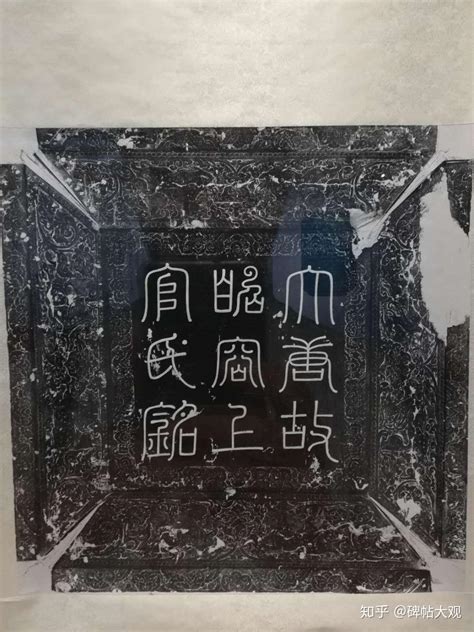 大唐故
昭容上
官氏銘
知乎 @碑帖大观